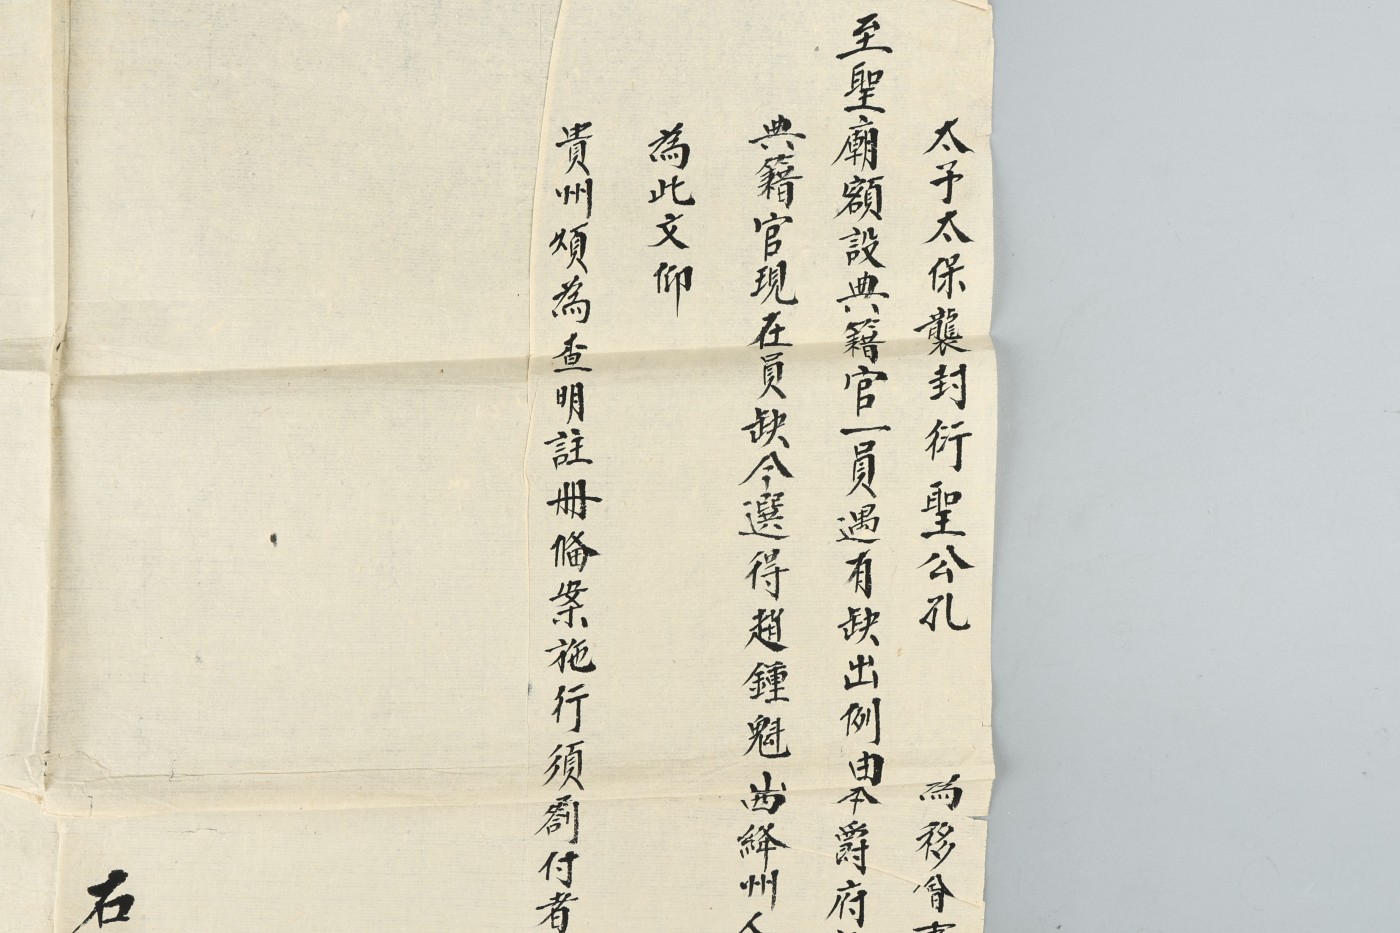 太子太保襲封衍聖公孔 為移會事
至聖廟額設典籍官一員遇有缺出例由本爵府
典籍官現在員缺今選得趙鍾魁 絳州人
為此文仰
貴州煩為查明註冊俻案施行須劄付者
右